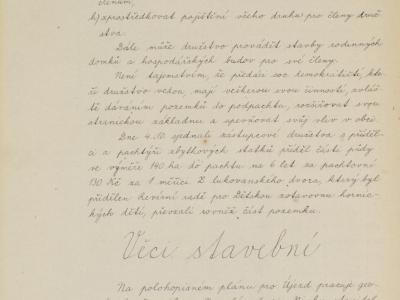 členům,
b) zprostředkovat pojištění všeho druhu pro členy druž-
stva.
Dále může družstvo provádět stavby rodinných
domků a hospodářských budov pro své členy.
Není tajemstvím, že předáci soc. demokratičtí, kte-
ří družstvo vedou, mají veškerou svou činností, zvláš-
tě dáváním pozemků do podpachtu, rozšiřovat svou
stranickou základnu a upevňovat svůj vliv v obci.
Dne 4./10. sjednali zástupcové družstva s příděl-
ci a pachtýři zbytkových statků příděl části půdy
ve výměře 140 ha do pachtu na 6 let za pachtovní
130 Kč za 1 měřici. Z lukovanského dvora, který byl
přidělen Revírní radě pro Dětskou zotavovnu hornic-
kých dětí, převzali rovněž část pozemku.
Věci stavební
Na polohopisném plánu pro Újezd pracuje geo-